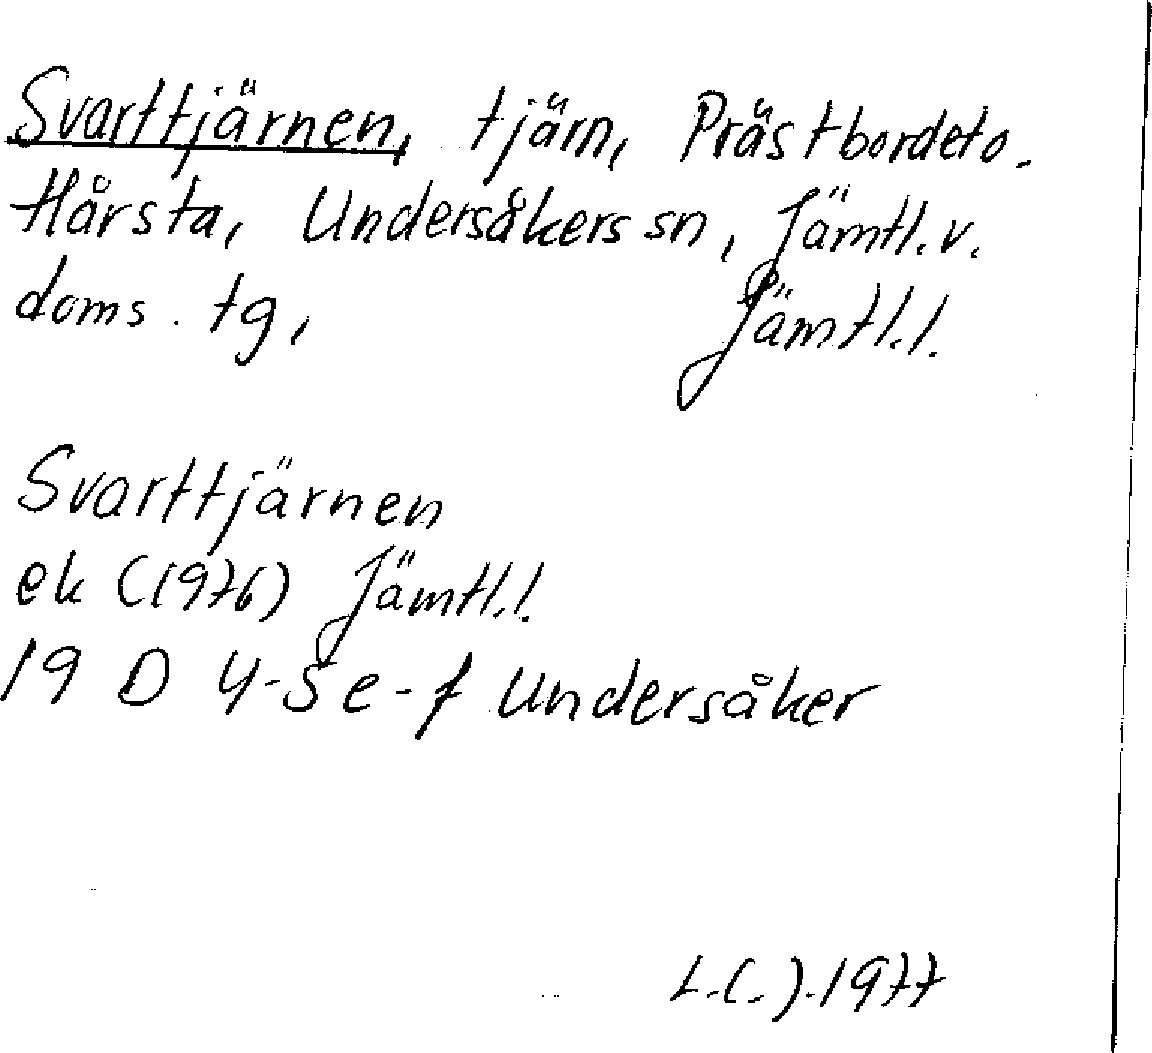 Svarttjärnen, tjärn, Prästbordet o.
Hårsta, Undersåkers sn, Jämtl. v.
doms. tg, Jämtl. l.
Svarttjärnen
ek (1976) Jämtl. l.
19 D 4-5 e-f Undersåker
L.(.).1977